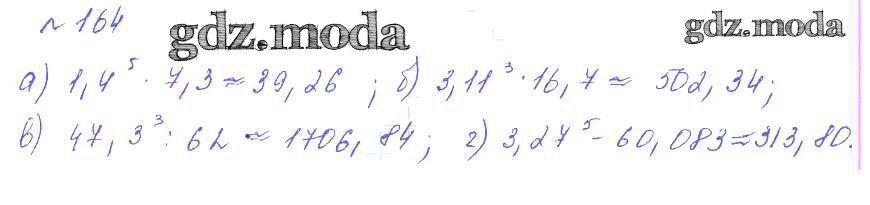 № 164 gdz.moda gdz.moda
а) 1,4⁵ · 7,3 ≈ 39,26 ; б) 3,11³ · 16,7 ≈ 502,34;
в) 47,3³ : 62 ≈ 1706,84; г) 3,27⁵ - 60,083 ≈ 313,80.